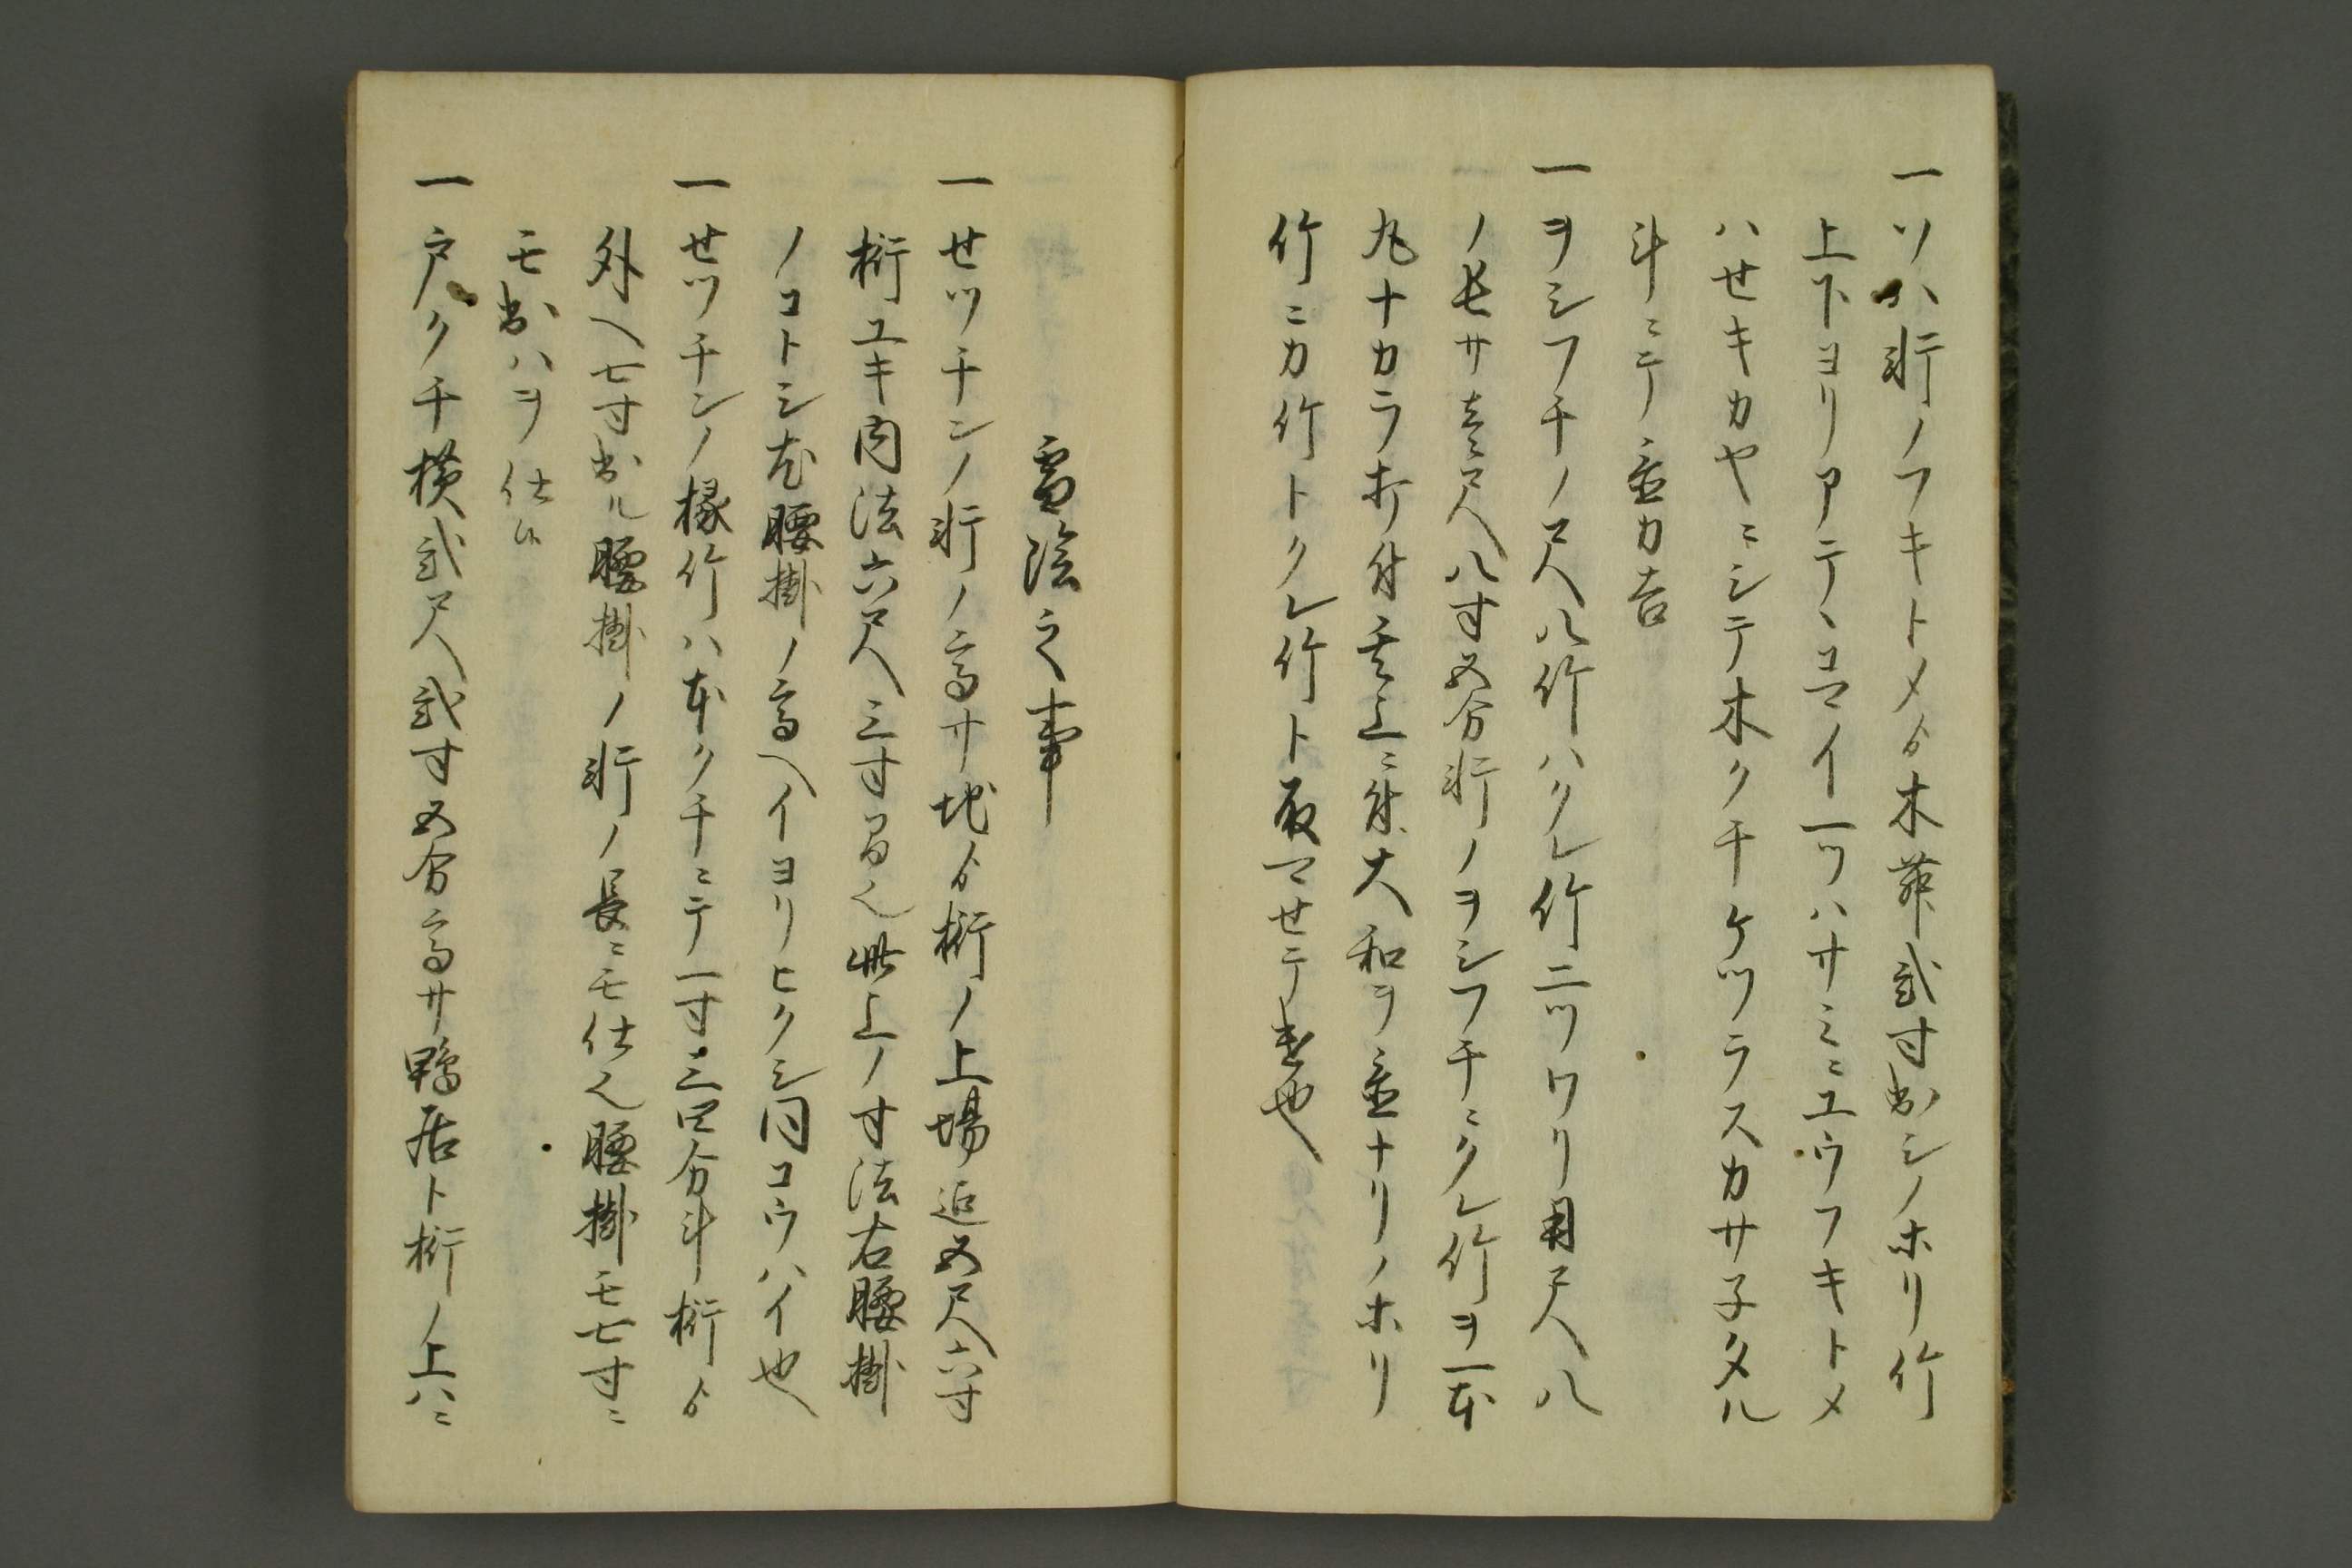 一ソハ軒ノフキトメゟ木舞弐寸出シノホリ竹
上下ヨリアテヽコマイ一ツハサミニユウフキトメ
ハせキカヤニシテ木クチケツラスカサ子タル
斗ニテ並カ吉
一ヲシフチノ尺八竹ハクレ竹ニツワリ用尺八
ノ長サ壱尺八寸五分軒ノヲシフチニクレ竹ヲ一本
丸ナカラ打付其上ニ付大和ヲ並ナリノホリ
竹ニカ竹トクレ竹ト取マせテ書也
雪隠之事
一せツチンノ軒ノ高サ地ゟ桁ノ上場迠五尺六寸
桁ユキ内法六尺三寸間也此上ノ寸法右腰掛
ノコトシ尤腰掛ノ高ヘイヨリヒクシ同コウハイ也
一せツチンノ椽竹ハ本クチニテ一寸三四分斗桁ゟ
外ヘ七寸出ル腰掛ノ軒ノ長ニモ仕也腰掛モ七寸ニ
モ出ハヲ仕候
一戸クチ横弐尺弐寸五分高サ鴨居ト桁ノ上ハニ